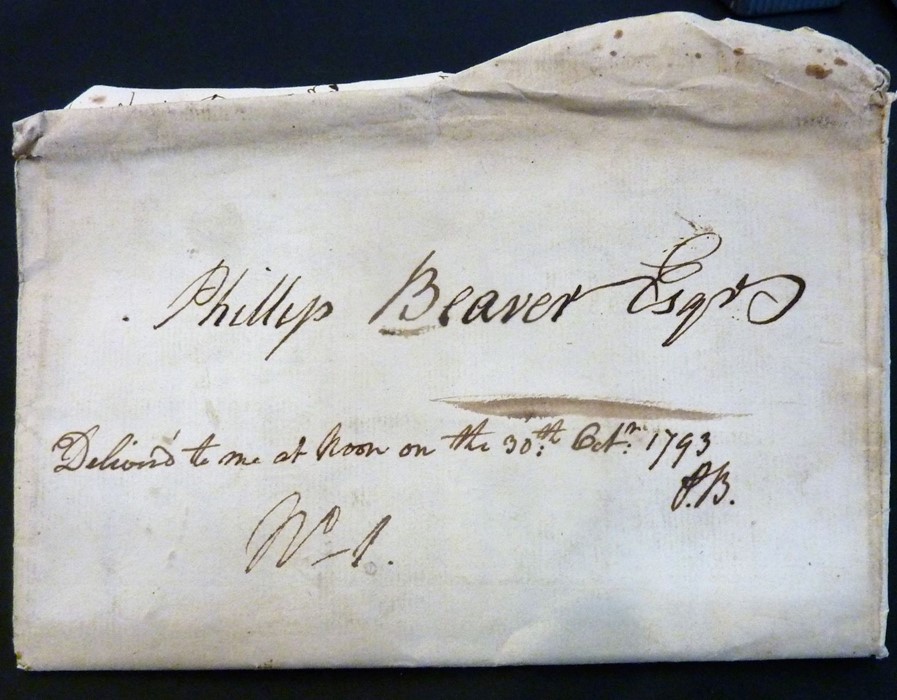 Phillip Beaver Esqr
Deliver'd to me at Noon on the 30th: Octr: 1793
P.B.
No 1.